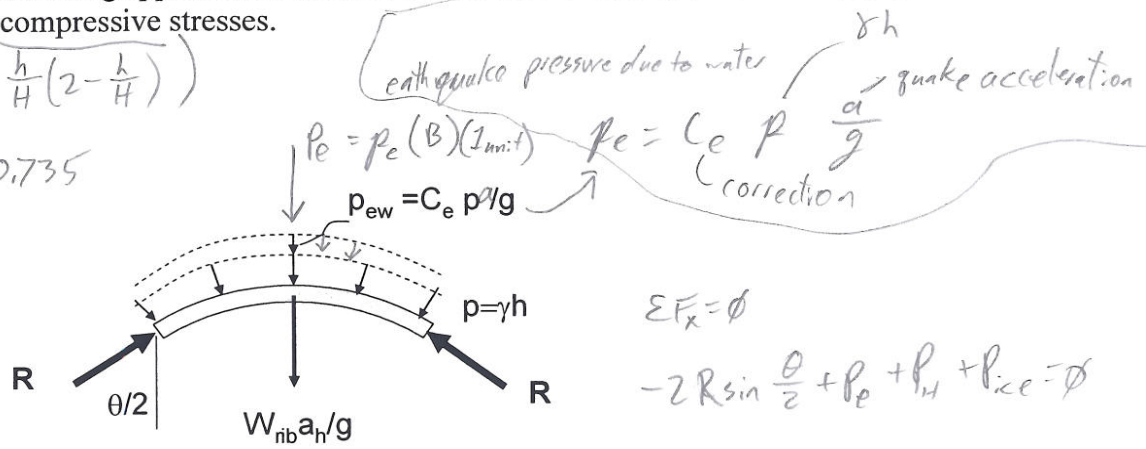 compressive stresses.
h/H (2 - h/H) )
0.735
γh
eathquake pressure due to water
quake acceleration
Pe = pe (B)(1unit)
pe = Ce p a/g
correction
pew =Ce pa/g
p=γh
R
R
θ/2
Wribah/g
ΣFx = ∅
-2 R sin θ/2 + Pe + PH + Pice = ∅